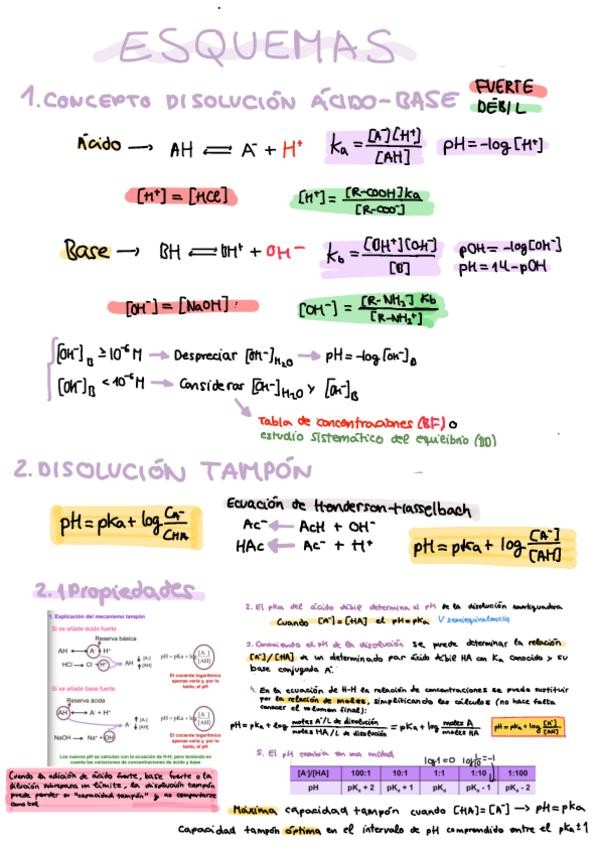 ESQUEMAS
1. CONCEPTO DISOLUCIÓN ÁCIDO-BASE
FUERTE
DÉBIL
Ácido → AH ⇌ A⁻ + H⁺ Ka = [A⁻][H⁺]/[AH] pH = -log[H⁺]
[H⁺] = [HCl] [H⁺] = [R-COOH]Ka/[R-COO⁻]
Base → BH ⇌ BH⁺ + OH⁻ Kb = [OH⁺][OH⁻]/[B] pOH = -log[OH⁻]
pH = 14 - pOH
[OH⁻] = [NaOH] [OH⁻] = [R-NH₂] Kb/[R-NH₂⁺]
[OH⁻]B ≥ 10⁻⁶ M → Despreciar [OH⁻]H₂O → pH = -log[OH⁻]B
[OH⁻]B < 10⁻⁶ M → Considerar [OH⁻]H₂O y [OH⁻]B
Tabla de concentraciones (BF) o
estudio sistemático del equilibrio (BD)
2. DISOLUCIÓN TAMPÓN
pH = pKa + log CA⁻/CHA
Ecuación de Henderson-Hasselbach
Ac⁻ ← AcH + OH⁻
HAc ← Ac⁻ + H⁺
pH = pKa + log [A⁻]/[AH]
2.1 Propiedades
1. Explicación del mecanismo tampón
Si se añade ácido fuerte
Reserva básica
AH ⇌ A⁻ + H⁺
HCl → Cl⁻ + H⁺ AH ↓[A⁻] ↑[AH]
pH = pKa + log [A⁻]/[AH]
El cociente logarítmico
apenas varía y, por lo
tanto, el pH
Si se añade base fuerte
Reserva ácida
AH ⇌ A⁻ + H⁺
A⁻ ↑[A⁻] ↓[AH]
NaOH → Na⁺ + OH⁻
pH = pKa + log [A⁻]/[AH]
El cociente logarítmico
apenas varía y, por lo
tanto, el pH
Los nuevos pH se calculan con la ecuación de H-H, pero teniendo en
cuenta las variaciones de concentraciones de ácido y base
Cuando la adición de ácido fuerte, base fuerte o la
dilución sobrepasa un límite, la disolución tampón
puede perder su "capacidad tampón" y no comportarse
como tal
2. El pKa del ácido débil determina el pH de la disolución amortiguadora
Cuando [A⁻] = [HA] el pH = pKa V semiequivalencia
3. Conociendo el pH de la disolución se puede determinar la relación
[A⁻]/[HA] de un determinado par ácido débil HA con Ka conocido y su
base conjugada A⁻.
4. En la ecuación de H-H la relación de concentraciones se puede sustituir
por la relación de moles, simplificando los cálculos (no hace falta
conocer el volumen final):
pH = pKa + log moles A⁻/L de disolución/moles HA/L de disolución = pKa + log moles A/moles HA pH = pKa + log [A⁻]/[AH]
5. El pH cambia en una unidad
log 1 = 0 log 1/10 = -1
[A⁻]/[HA] 100:1 10:1 1:1 1:10 1:100
pH pKa + 2 pKa + 1 pKa pKa - 1 pKa - 2
Máxima capacidad tampón cuando [HA] = [A⁻] → pH = pKa
Capacidad tampón óptima en el intervalo de pH comprendido entre el pKa ± 1